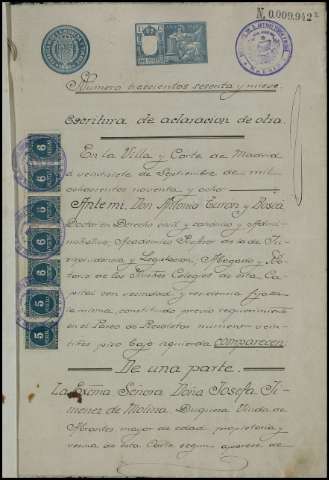 N. 0.009.942
Número trescientos sesenta y nueve
Escritura de aclaracion de otra.
En la Villa y Corte de Madrid
a veintisiete de Septiembre de mil
ochocientos noventa y ocho
Antemi, Don Antonio Turon y Boscá
Doctor en Derecho civil y canonico y admi-
nistrativo, Academico Profesor de la de Ju-
risprudencia y Legislacion, Abogado y No-
tario de los Ilustres Colegios de esta Ca-
pital con vecindad y residencia fija en
la misma, constituido previo requerimiento
en el Paseo de Recoletos numero vein-
titres piso bajo izquierda comparecen
De una parte.
La Excma Señora Doña Josefa Ji-
menez de Molina, Duquesa Viuda de
Abrantes mayor de edad propietaria y
vecina de esta Corte segun aparece de
6
6
6
6
6
5
5